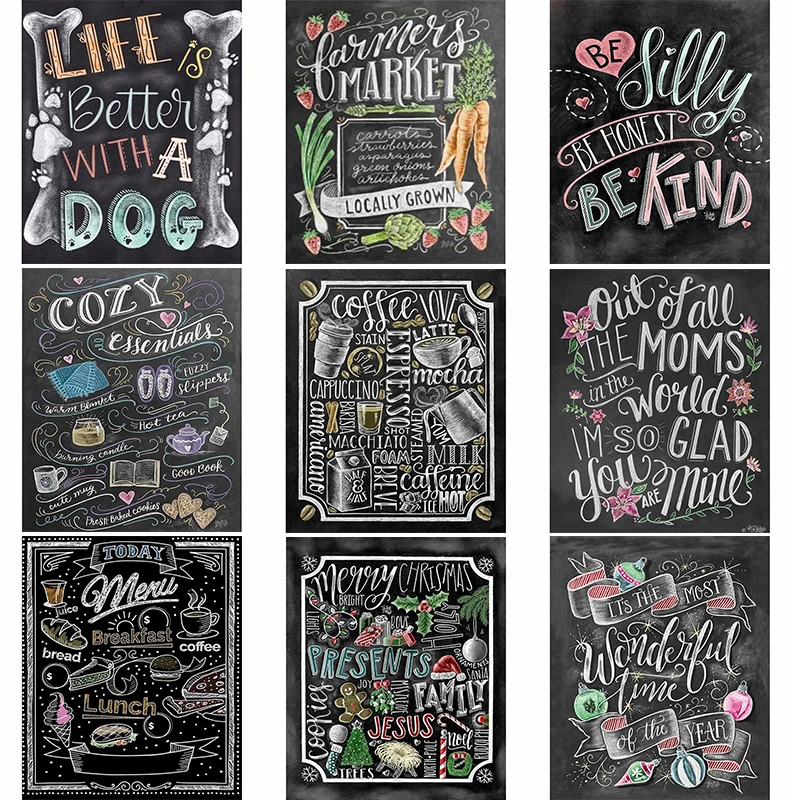 LIFE is
Better
WITH A
DOG
farmers
MARKET
carrots
strawberries
asparagus
green onions
artichokes
LOCALLY GROWN
BE Silly
BE HONEST
BE KIND
COZY
Essentials
FUZZY
slippers
Warm Blanket
Hot tea
burning candle
Good Book
cute mug
Fresh-Baked cookies
coffee LOVE
SUGAR
STAIN
LATTE
ESPRESSO
mocha
CAPPUCCINO
americano
BARISTA
SHOT
STEAMED
MACCHIATO
FOAM
MILK
caffeine
ICE HOT
Out of all
THE MOMS
in the World
I'M SO GLAD
You ARE Mine
TODAY
Menu
juice
$
Breakfast
coffee
bread
$
Lunch
$
Merry CHRISTMAS
BRIGHT
LIGHTS
BOWS
HOLLY
ORNAMENTS
PRESENTS
SANTA
JOY
MISTLETOE
FAMILY
cookies
JESUS
noel
NORTH POLE
TREES
IT'S THE MOST
Wonderful
time
of the YEAR